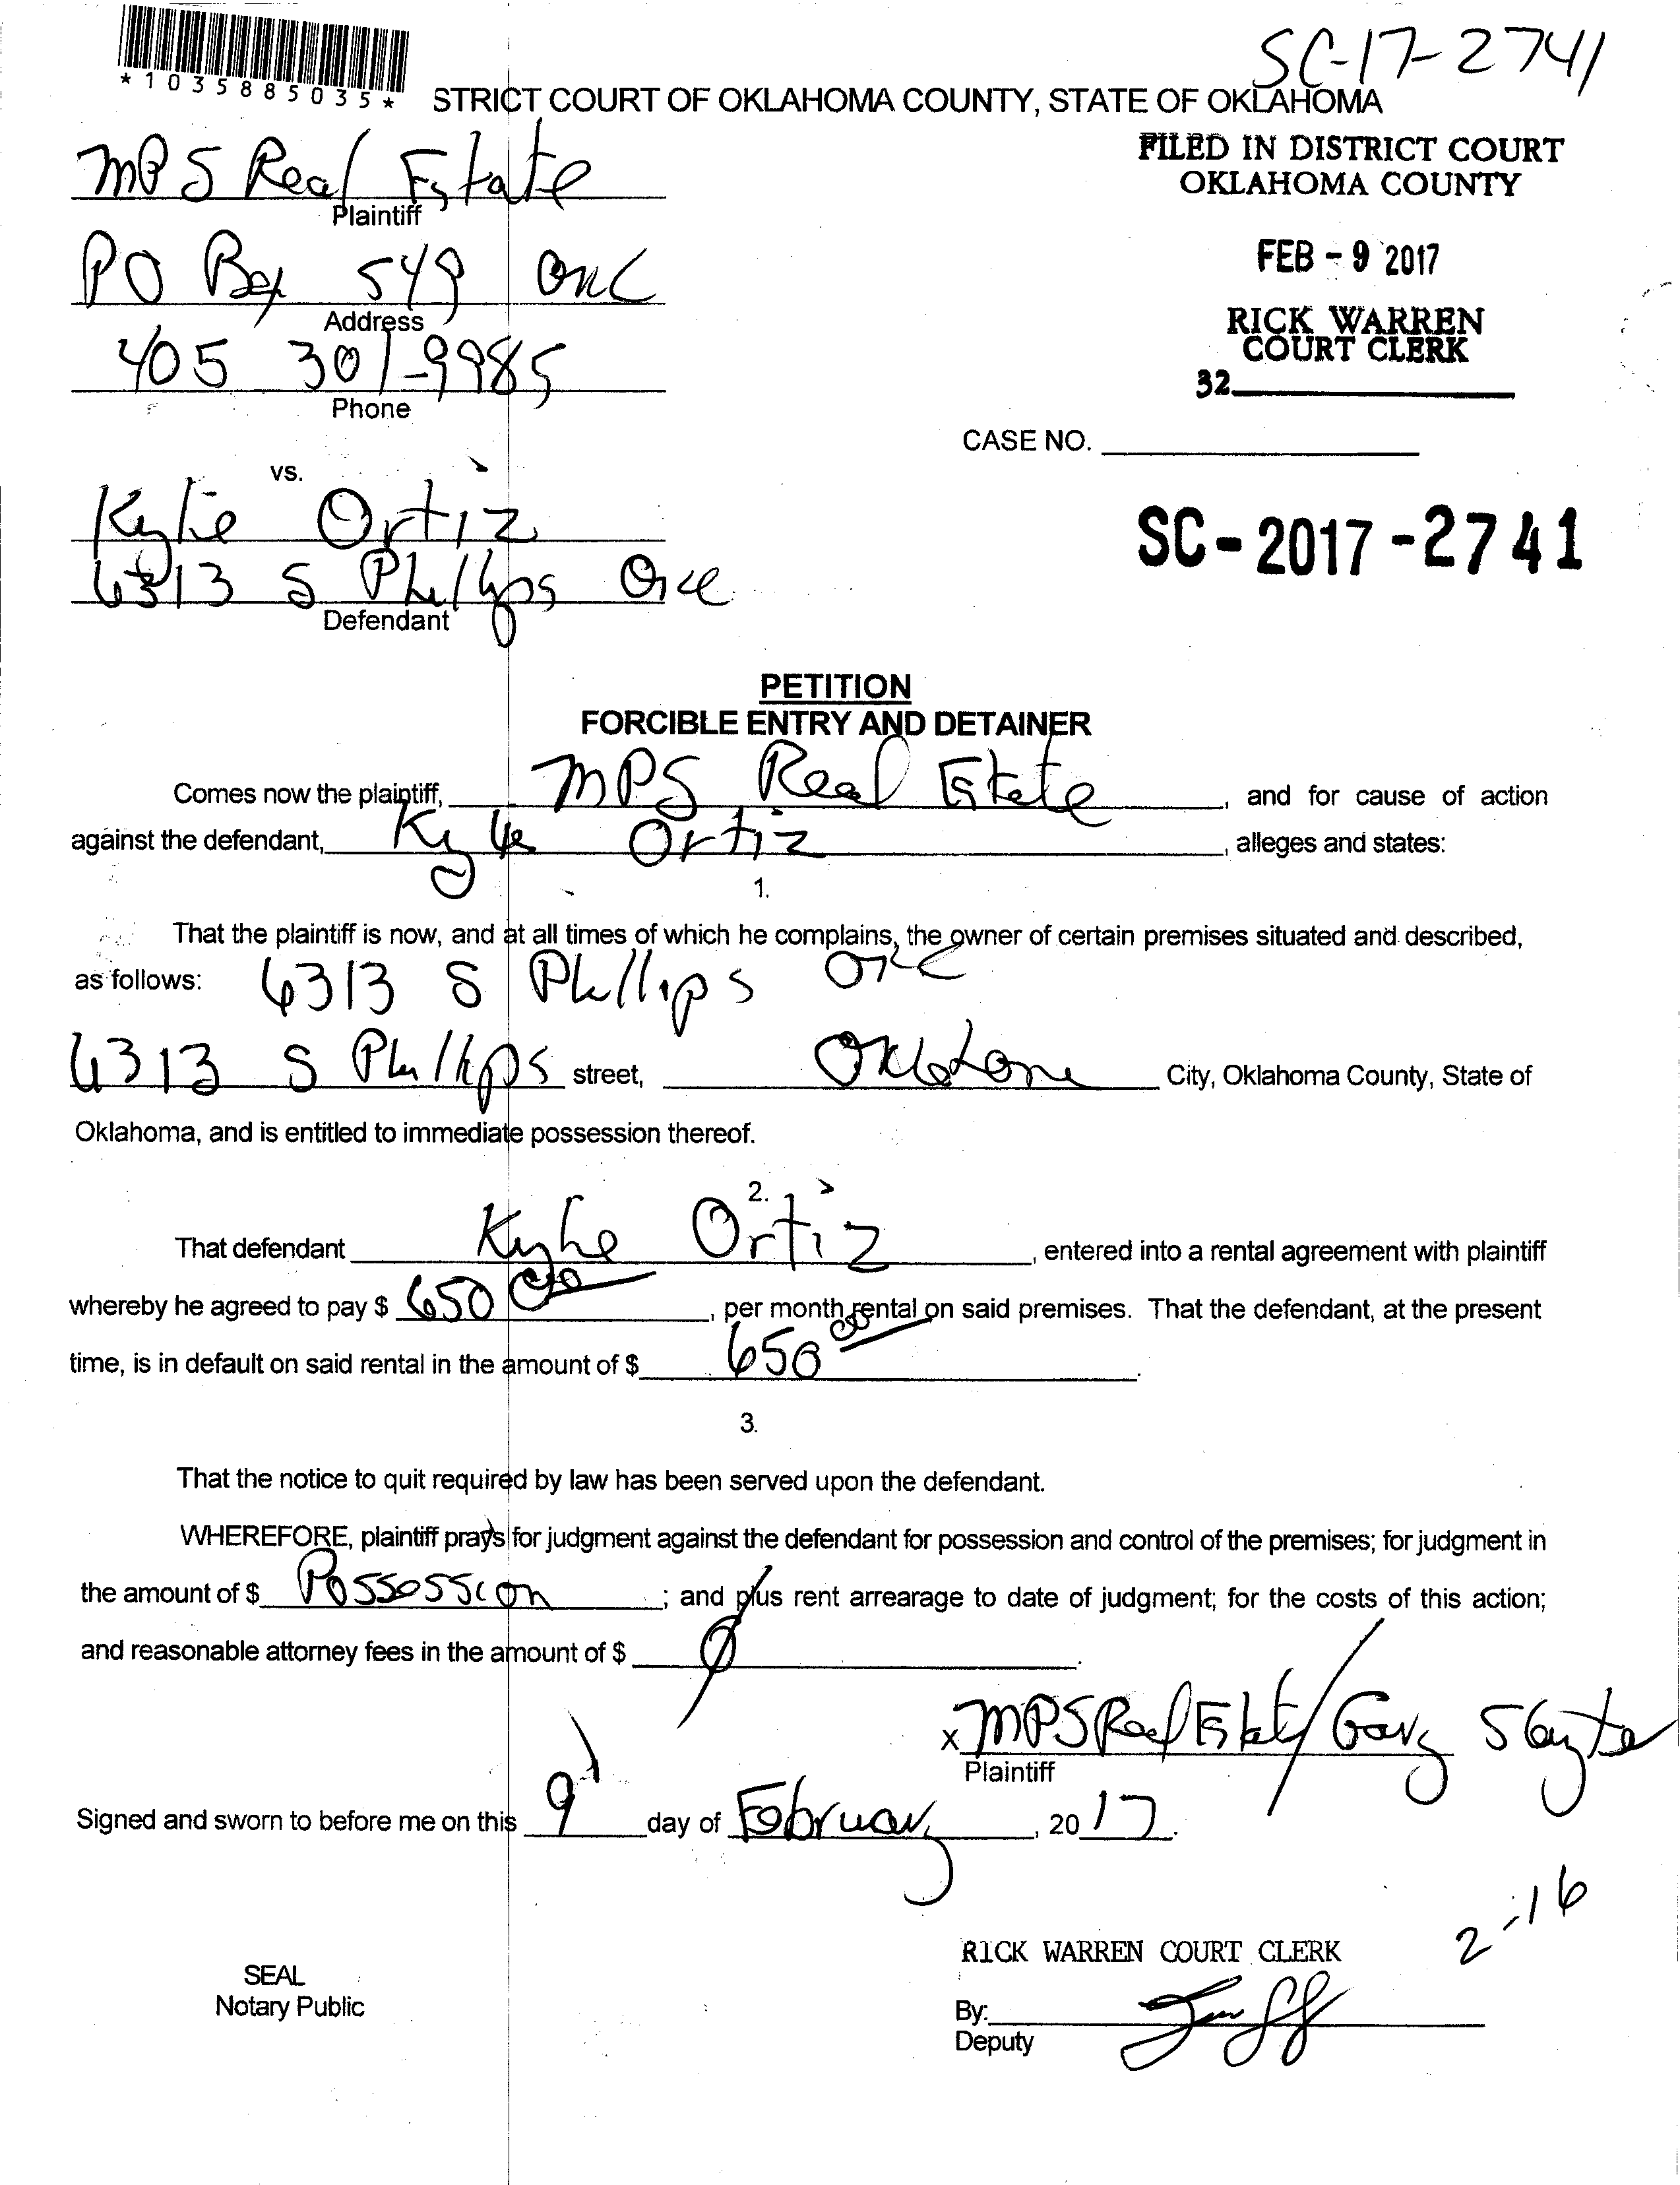 SC-17-2741
*1035885035*
STRICT COURT OF OKLAHOMA COUNTY, STATE OF OKLAHOMA
MPS Real Estate
Plaintiff
FILED IN DISTRICT COURT
OKLAHOMA COUNTY
FEB - 9 2017
RICK WARREN
COURT CLERK
32
PO Box 549 OKC
Address
405 301-9985
Phone
CASE NO.
vs.
Kylie Ortiz
SC-2017-2741
6313 S Phillips OKC
Defendant
PETITION
FORCIBLE ENTRY AND DETAINER
Comes now the plaintiff, MPS Real Estate, and for cause of action
against the defendant, Kylie Ortiz, alleges and states:
1.
That the plaintiff is now, and at all times of which he complains, the owner of certain premises situated and described,
as follows: 6313 S Phillips OKC
6313 S Phillips street, City, Oklahoma County, State of
Oklahoma, and is entitled to immediate possession thereof.
2.
That defendant Kylie Ortiz, entered into a rental agreement with plaintiff
whereby he agreed to pay $ 650 00, per month rental on said premises. That the defendant, at the present
time, is in default on said rental in the amount of $ 650 00.
3.
That the notice to quit required by law has been served upon the defendant.
WHEREFORE, plaintiff prays for judgment against the defendant for possession and control of the premises; for judgment in
the amount of $ Possession; and plus rent arrearage to date of judgment; for the costs of this action;
and reasonable attorney fees in the amount of $ 0.
x MPS Real Estate/Gary Slayter
Plaintiff
Signed and sworn to before me on this 9 day of February, 2017.
2-16
RICK WARREN COURT CLERK
SEAL
Notary Public
By:
Deputy